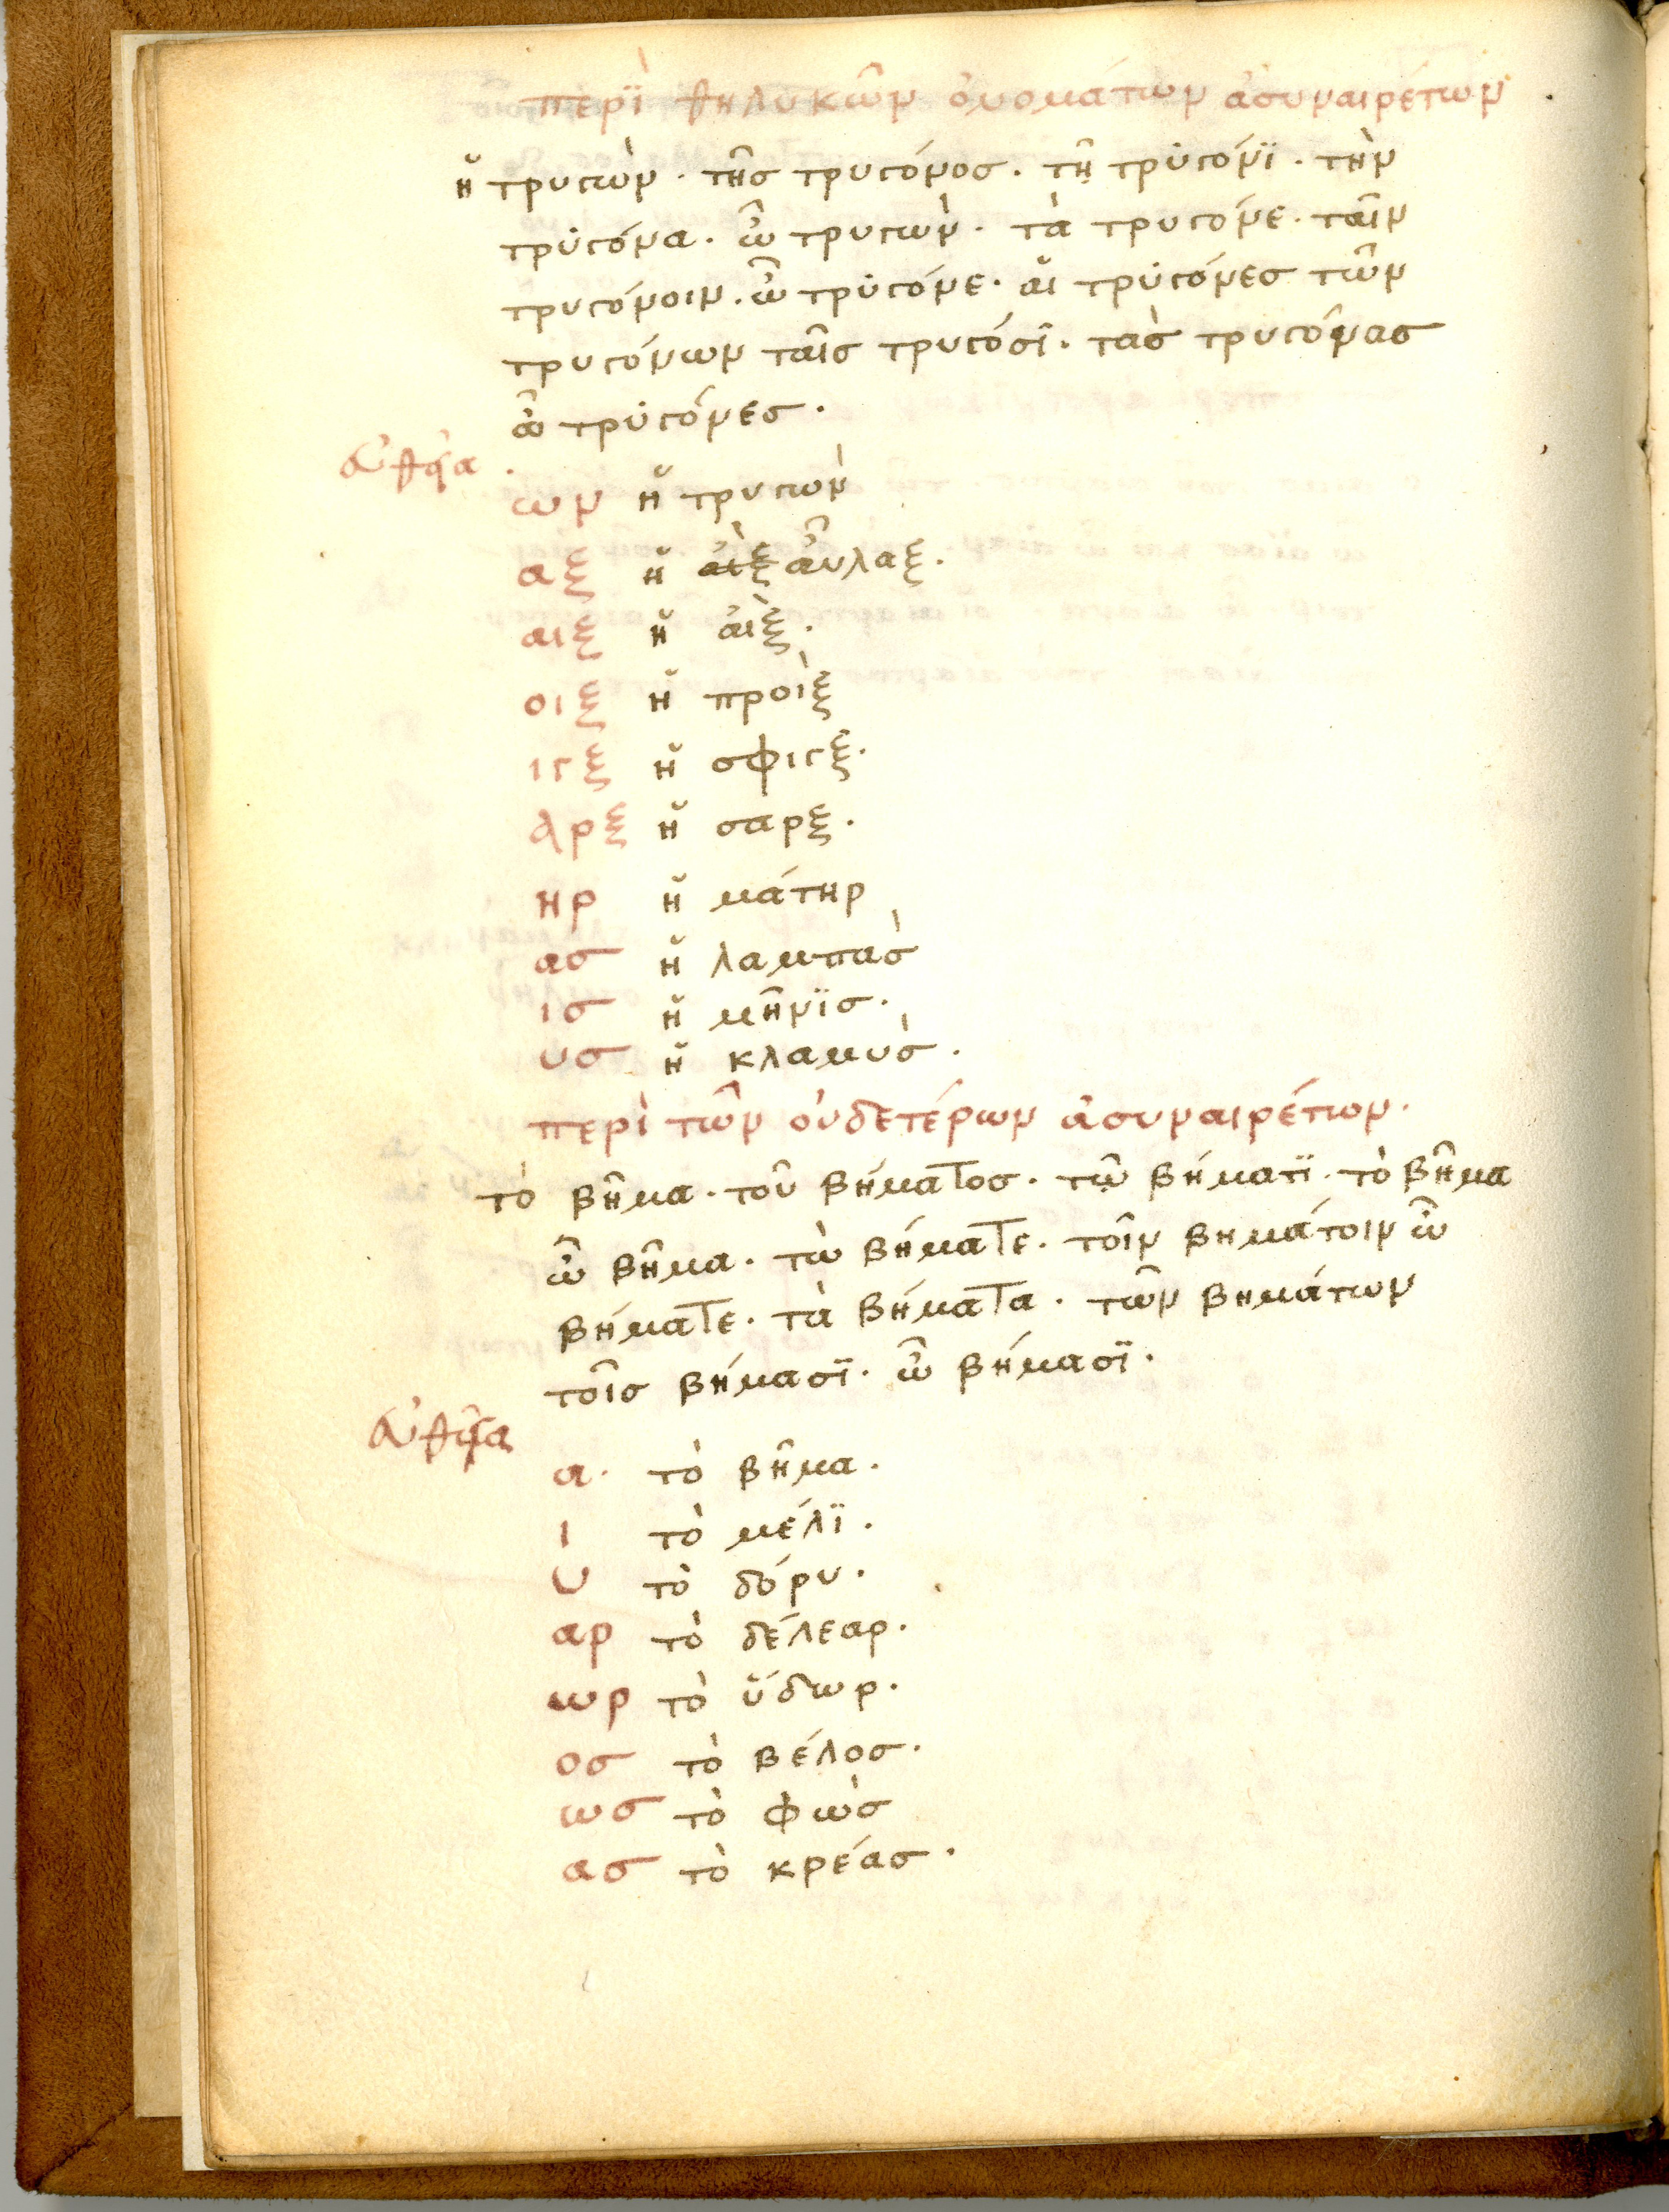 περὶ θηλυκῶν ὀνομάτων ἀσυναιρέτων
ἡ τρυγὼν · τῆς τρυγόνος · τῆ τρυγόνϊ · τὴν
τρυγόνα · ὦ τρυγὼν · τὰ τρυγόνε · ταῖν
τρυγόνοιν · ὦ τρυγόνε · αἱ τρυγόνες τῶν
τρυγόνων ταῖς τρυγόσϊ · τὰς τρυγόνας
ὦ τρυγόνες ·
εὐθεῖα
ων ἡ τρυγὼν
αξ ἡ αἲξ αὖλαξ ·
αιξ ἡ αἲξ ·
οιξ ἡ προὶξ
ιγξ ἡ σφιγξ ·
αρξ ἡ σαρξ ·
ηρ ἡ μάτηρ
ας ἡ λαμπὰς
ις ἡ μῆνϊς ·
υς ἡ κλαμὺς ·
περὶ τῶν οὐδετέρων ἀσυναιρέτων ·
τὸ βῆμα · τοῦ βήματος · τῷ βήματϊ · τὸ βῆμα
ὦ βῆμα · τὼ βήματε · τοῖν βημάτοιν ὦ
βήματε · τὰ βήματα · τῶν βημάτων
τοῖς βήμασϊ · ὦ βήμασϊ ·
εὐθεῖα
α · τὸ βῆμα ·
ι τὸ μέλϊ ·
υ τὸ δόρυ ·
αρ τὸ δέλεαρ ·
ωρ τὸ ὕδωρ ·
ος τὸ βέλος ·
ως τὸ φὼς
ας τὸ κρέας ·